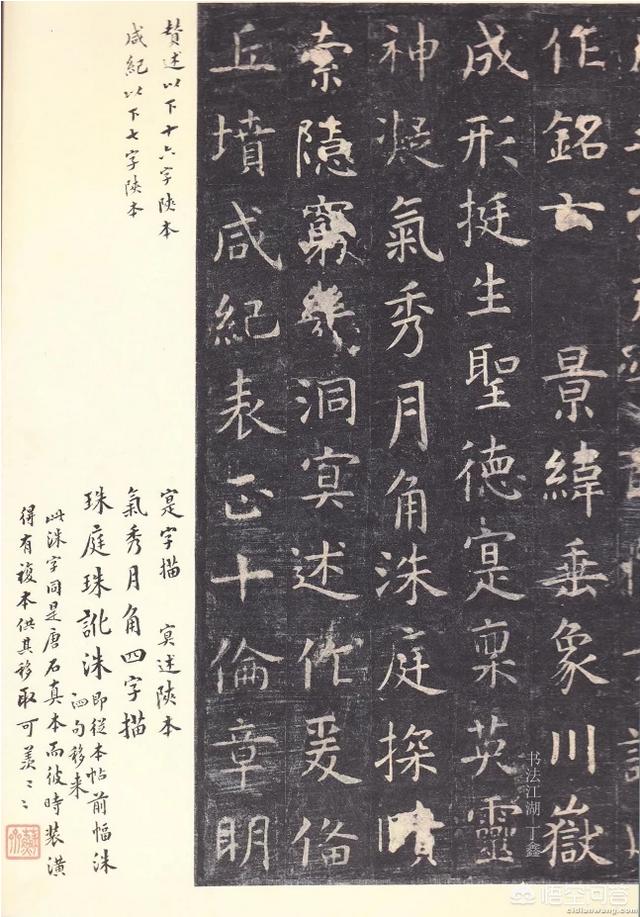 作銘云 景緯垂象川嶽
成形挺生聖德寔稟英靈
神凝氣秀月角洙庭探賾
索隱窮幾洞冥述作爰備
丘墳咸紀表正十倫章明
贊述以下十六字陝本
咸紀以下七字陝本
寔字描 冥述陝本
氣秀月角四字描
珠庭珠訛洙 即從本帖前幅洙
泗句移来
此洙字同是唐石真本而彼時装潢
得有複本供其移取可羨〻〻
书法江湖 丁鑫
悟空问答
cidianwang.com